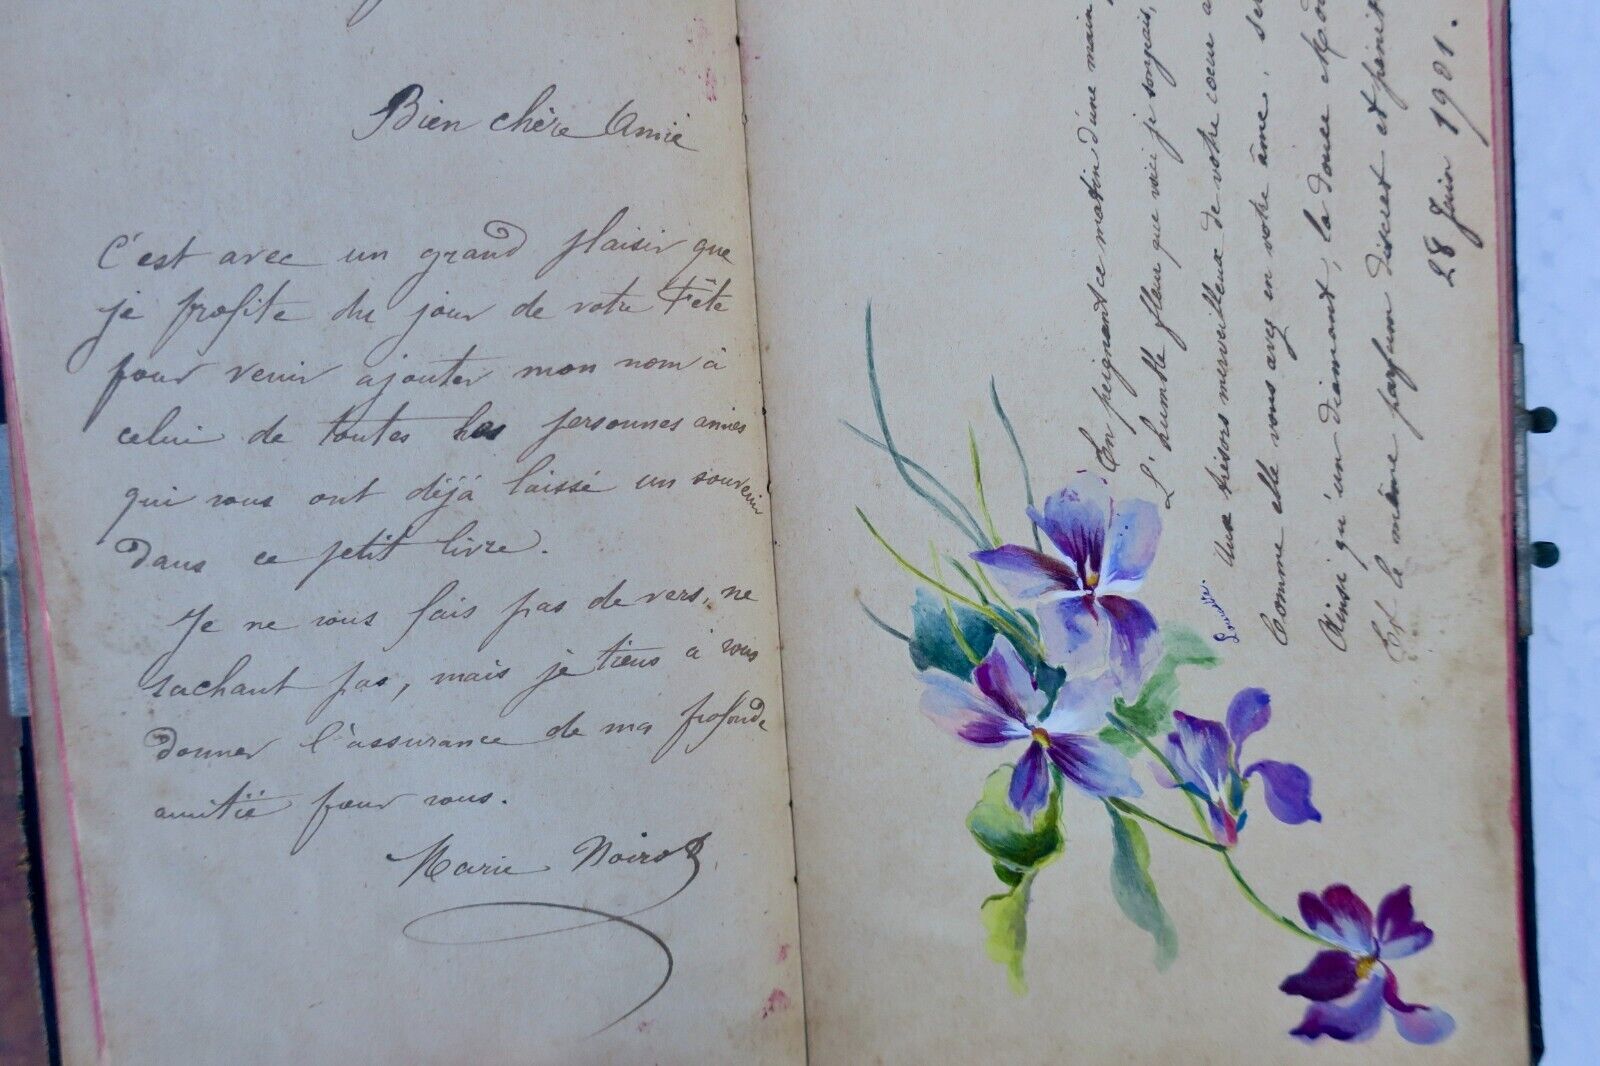 Bien chère Amie
C'est avec un grand plaisir que
je profite du jour de votre Fête
pour venir ajouter mon nom à
celui de toutes les personnes amies
qui vous ont déjà laissé un souvenir
dans ce petit livre.
Je ne vous fais pas de vers, ne
sachant pas, mais je tiens à vous
donner l'assurance de ma profonde
amitié pour vous.
Marie Noirot
En peignant ce matin d'une main
L'humble fleur que voici je songeais,
Aux trésors merveilleux de votre cœur
Comme elle vous avez en votre âme,
Ainsi qu'un diamant, la douce
Et le même parfum discret et
28 Juin 1901.